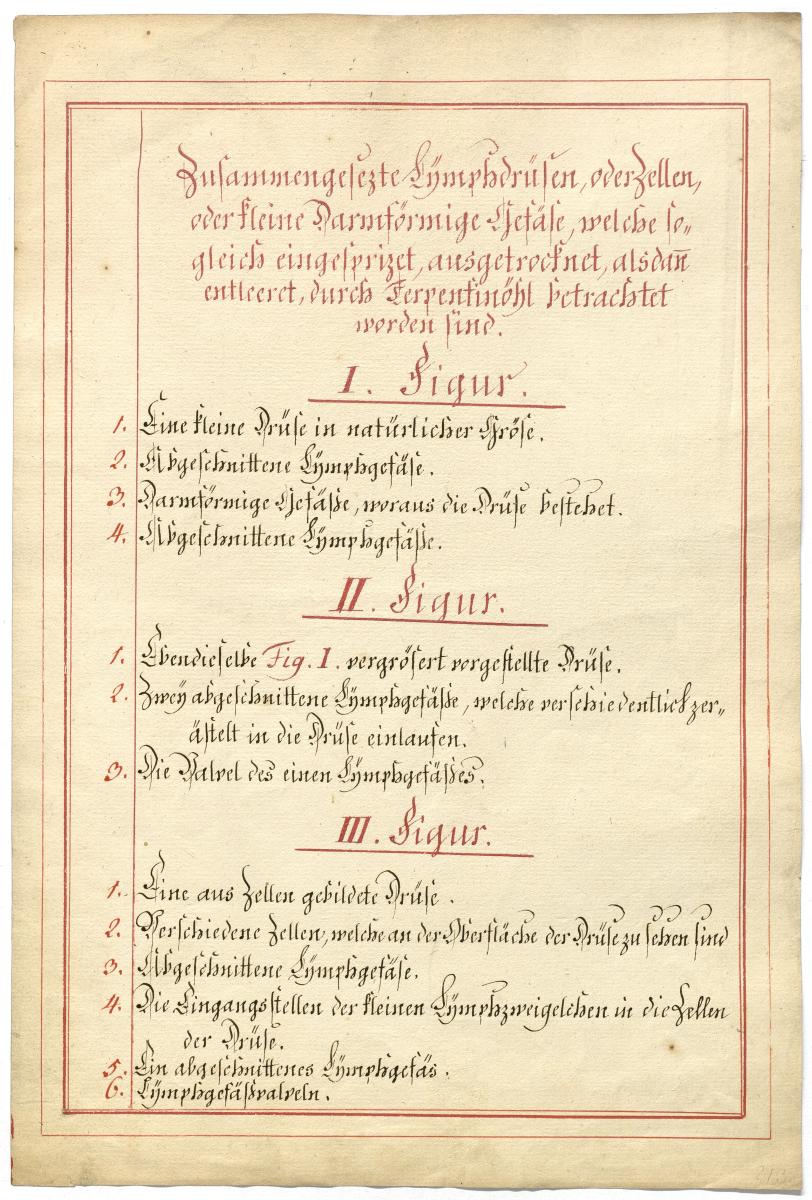 Zusammengesezte Lÿmphdrüsen, oder Zellen,
oder kleine Darmförmige Gefäse, welche so„
gleich eingesprizet, ausgetrocknet, alsdan̅
entleeret, durch Terpentinöhl betrachtet
worden sind.
I. Figur.
1. Eine kleine Drüse in natürlicher Gröse.
2. Abgeschnittene Lÿmphgefäse.
3. Darmförmige Gefäße, woraus die Drüse bestehet.
4. Abgeschnittene Lÿmphgefäße.
II. Figur.
1. Ebendieselbe Fig. I. vergrösert vorgestellte Drüse.
2. Zweÿ abgeschnittene Lÿmphgefäße, welche verschiedentlich zer„
ästelt in die Drüse einlaufen.
3. Die Valvel des einen Lÿmphgefäßes.
III. Figur.
1. Eine aus Zellen gebildete Drüse.
2. Verschiedene Zellen, welche an der Oberfläche der Drüse zu sehen sind
3. Abgeschnittene Lÿmphgefäse.
4. Die Eingangsstellen der kleinen Lÿmphzweigelchen in die Zellen
der Drüse.
5. Ein abgeschnittenes Lÿmphgefäs.
6. Lÿmphgefäßvalveln.